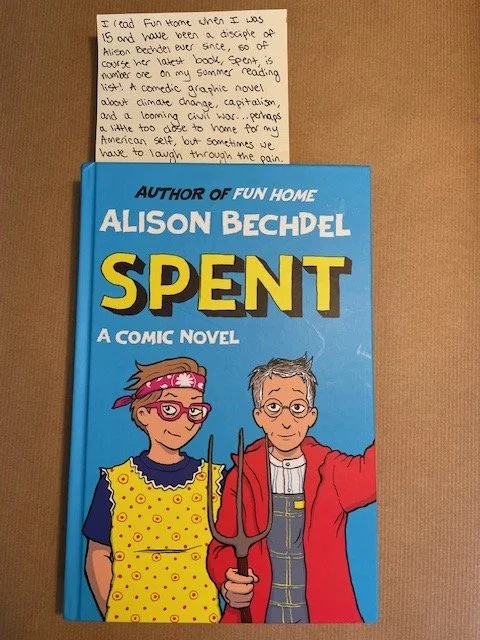 I read Fun Home when I was
15 and have been a disciple of
Alison Bechdel ever since, so of
course her latest book, Spent, is
number one on my summer reading
list! A comedic graphic novel
about climate change, capitalism,
and a looming civil war...perhaps
a little too close to home for my
American self, but sometimes we
have to laugh through the pain.
AUTHOR OF FUN HOME
ALISON BECHDEL
SPENT
A COMIC NOVEL